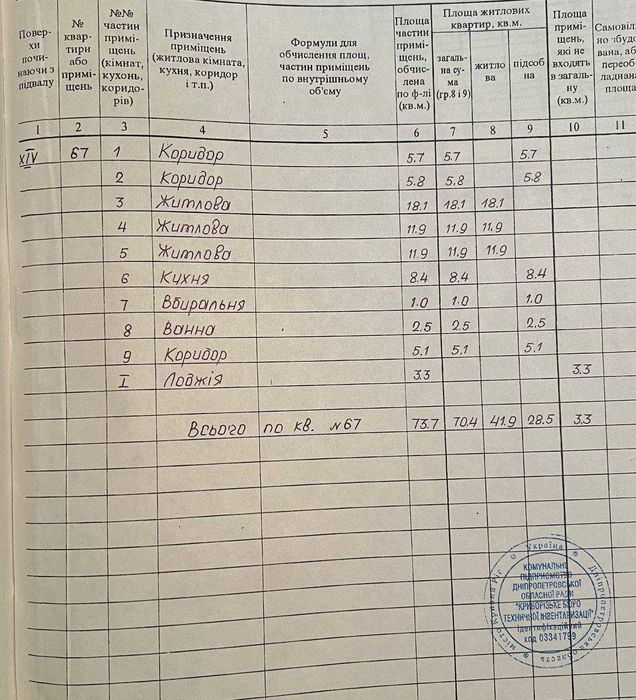 Повер-
хи
почи-
наючи з
підвалу
№
квар-
тири
або
примі-
щень
№№
частин
примі-
щень
(кімнат,
кухонь,
коридо-
рів)
Призначення
приміщень
(житлова кімната,
кухня, коридор
і т.п.)
Формули для
обчислення площ,
частин приміщень
по внутрішньому
об'єму
Площа
частин
примі-
щень,
обчис-
лена
по ф-лі
(кв.м.)
Площа житлових
квартир, кв.м.
загаль-
на су-
ма
(гр.8 і 9)
житло
ва
підсоб
на
Площа
примі-
щень,
які не
входять
в загаль-
ну
(кв.м.)
Самовіл
но збудо
вана, аб
переоб
ладнан
площа
1 2 3 4 5 6 7 8 9 10 11
XIV 67 1 Коридор 5.7 5.7 5.7
2 Коридор 5.8 5.8 5.8
3 Житлова 18.1 18.1 18.1
4 Житлова 11.9 11.9 11.9
5 Житлова 11.9 11.9 11.9
6 Кухня 8.4 8.4 8.4
7 Вбиральня 1.0 1.0 1.0
8 Ванна 2.5 2.5 2.5
9 Коридор 5.1 5.1 5.1
I Лоджія 3.3 3.3
Всього по кв. №67 73.7 70.4 41.9 28.5 3.3
Україна
Дніпропетровська область
місто Кривий Ріг
КОМУНАЛЬНЕ
ПІДПРИЄМСТВО
ДНІПРОПЕТРОВСЬКОЇ
ОБЛАСНОЇ РАДИ
"КРИВОРІЗЬКЕ БЮРО
ТЕХНІЧНОЇ ІНВЕНТАРИЗАЦІЇ"
Ідентифікаційний
код 03341799